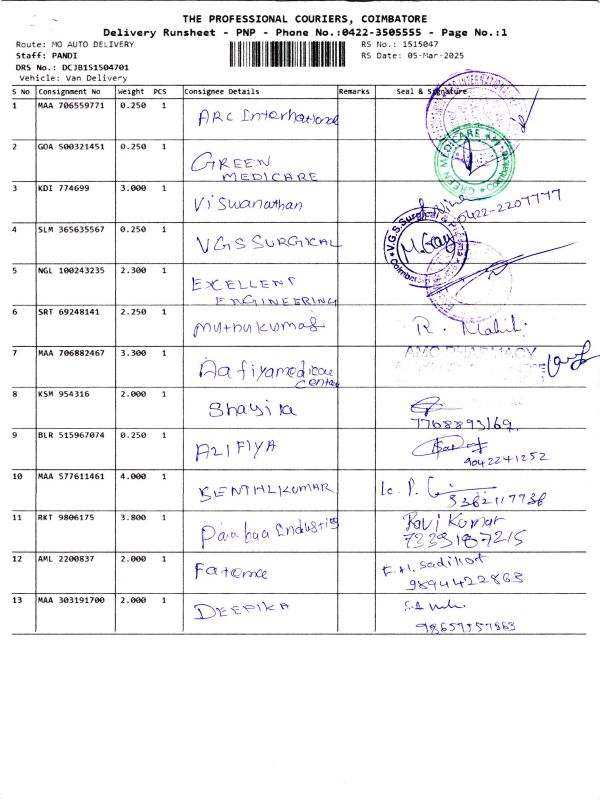 THE PROFESSIONAL COURIERS, COIMBATORE
Delivery Runsheet - PNP - Phone No.:0422-3505555 - Page No.:1
Route: MO AUTO DELIVERY
RS No.: 1515047
Staff: PANDI
RS Date: 05-Mar-2025
DRS No.: DCJB151504701
Vehicle: Van Delivery
S No Consignment No Weight PCS Consignee Details Remarks Seal & Signature
1 MAA 706559771 0.250 1 ARC International
2 GOA 500321451 0.250 1 GREEN
MEDICARE
GREEN MEDICARE
3 KDI 774699 3.000 1 Viswanathan
0422-2207777
4 SLM 365635567 0.250 1 VGS SURGICAL
V.G.S. Surgical
Coimbatore
5 NGL 100243235 2.300 1 EXCELLENT
ENGINEERING
6 SRT 69248141 2.250 1 muthukumar R. Mahil.
7 MAA 706882467 3.300 1 Aafiyamedical
center
AMC PHARMACY
8 KSM 954316 2.000 1 Shayira
7708893169.
9 BLR 515967074 0.250 1 ALIFIYA
9042241252
10 MAA 577611461 4.000 1 SENTHLKUMAR
11 RKT 9806175 3.800 1 Ravi Kumar
7339187215
12 AML 2200837 2.000 1 Fatema
9894422863
13 MAA 303191700 2.000 1 DEEPIKA